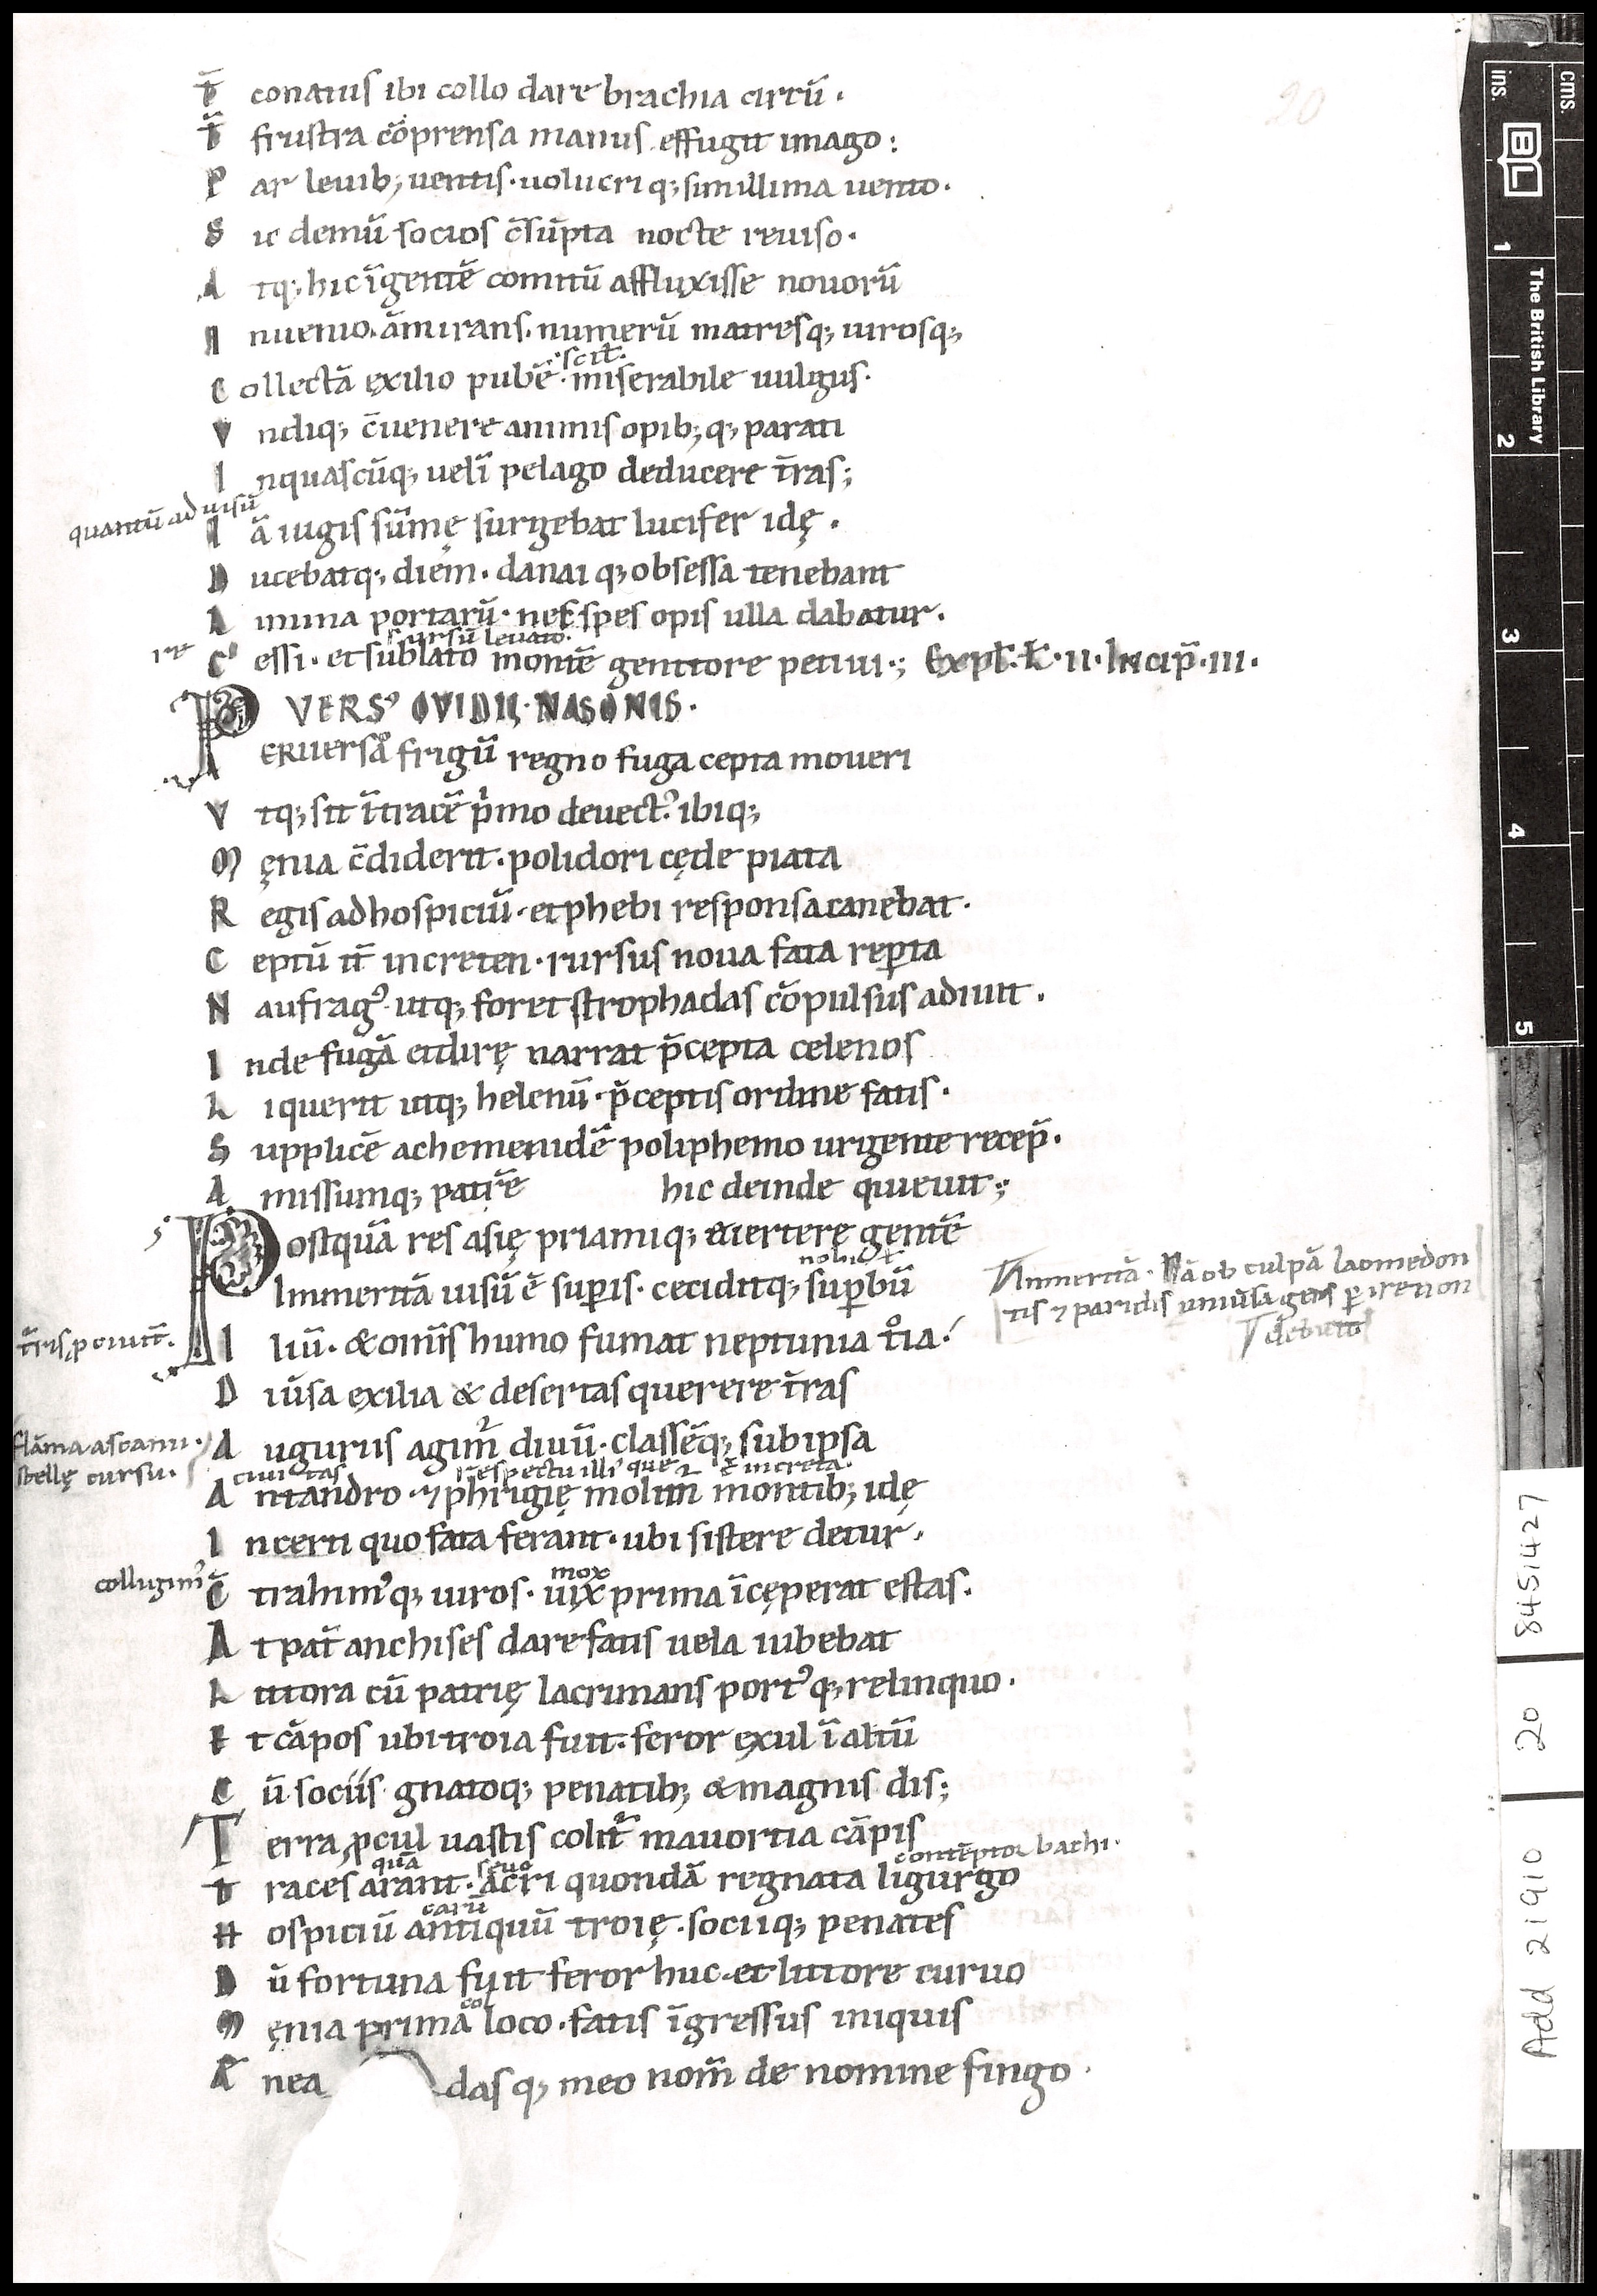 20
T̄ conatus ibi collo dare brachia circū.
T̄ frustra cōprensa manus effugit imago:
P ar leuib; uentis. uolucri q; simillima uento.
S ic demū socios c̄sūpta nocte reuiso.
A tq; hic īgentē comitū affluxisse nouorū
I nuenio. āmirans. numerū matresq; uirosq;
.scit̄.
C ollectā exilio pubē. miserabile uulgus.
V ndiq; c̄uenere animis opib; q; parati
I nquascūq; uelī pelago deducere t̄ras;
quantū ad uisū
I ā iugis sūmę surgebat lucifer idę.
D ucebatq; diem. danai q; obsessa tenebant
L imina portarū. nec spes opis ulla dabatur.
sursū leuato.
re C' essi. et sublato montē genitore petiui.; Expl̄. L̄. II. Incip̄. III.
VERS' OVIDII. NASONIS.
P ERuersā frigū regno fuga cepta moueri
V tq; sit ītracē p'mo deuect' ibiq;
M ęnia c̄diderit. polidori cęde piata
R egis ad hospiciū. et phebi responsa canebat.
C eptū it̄ in creten. rursus noua fata rep̄ta
N aufrag' utq; foret strophadas cōpulsus adiuit.
I nde fugā et dirę narrat p̄cepta celenos
L iquerit utq; helenū. p̄ceptis ordine fatis.
S upplicē achemenidē poliphemo urgente recep̄.
A missumq; patrē hic deinde quieuit;
P ostquā res asię priamiq; euertere gentē
Immeritā uisū ē sup̄is. ceciditq; sup̄bū
Immeritā. Nā ob culpā laomedon
tis ⁊ paridis uniūsa gens p̄ire non
debuit
I liū. & om̄is humo fumat neptunia t°ia.
D iūsa exilia & desertas querere t̄ras
flāma ascanii.
stellę cursu.
A uguriis agim̄ diuū. classēq; sub ipsa
ciuitas respectu illi' que ē in creta.
A ntandro. ⁊ phrigię molim̄ montib; idę
I ncerti quo fata ferant. ubi sistere detur.
collugim' mox
C̄ trahim'q; uiros. uix prima īcęperat estas.
A t pat̄ anchises dare fatis uela iubebat
L ittora cū patrię lacrimans port'q; relinquo.
E t cāpos ubi troia fuit. feror exul ī altū
C ū sociis gnatoq; penatib; & magnis dis;
T erra p̄cul uastis colit̄ mauortia cāpis
quā seuo contēptor bachi.
T races arant. acri quondā regnata ligurgo
carū
H ospiciū antiquū troię. sociiq; penates
D ū fortuna fuit feror huc. et littore curuo
M ęnia primā loco. fatis īgressus iniquis
Ā nea dasq; meo nom̄ de nomine fingo.
cms.
ins.
BL
The British Library
1
2
3
4
5
Add 21910 20 8451427